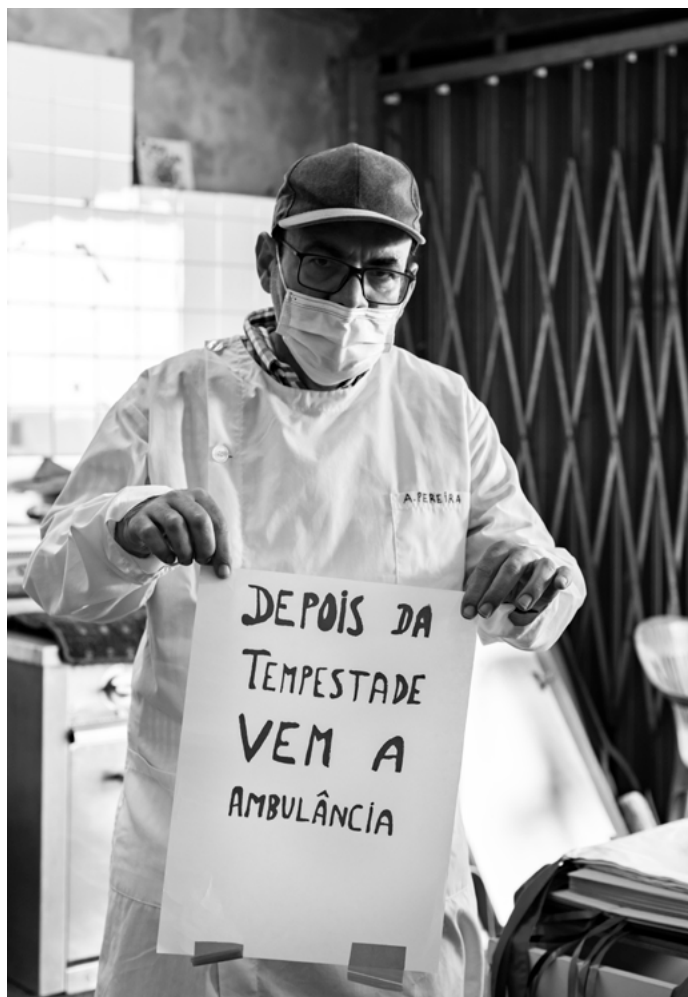 A. PEREIRA
DEPOIS DA
TEMPESTADE
VEM A
AMBULÂNCIA